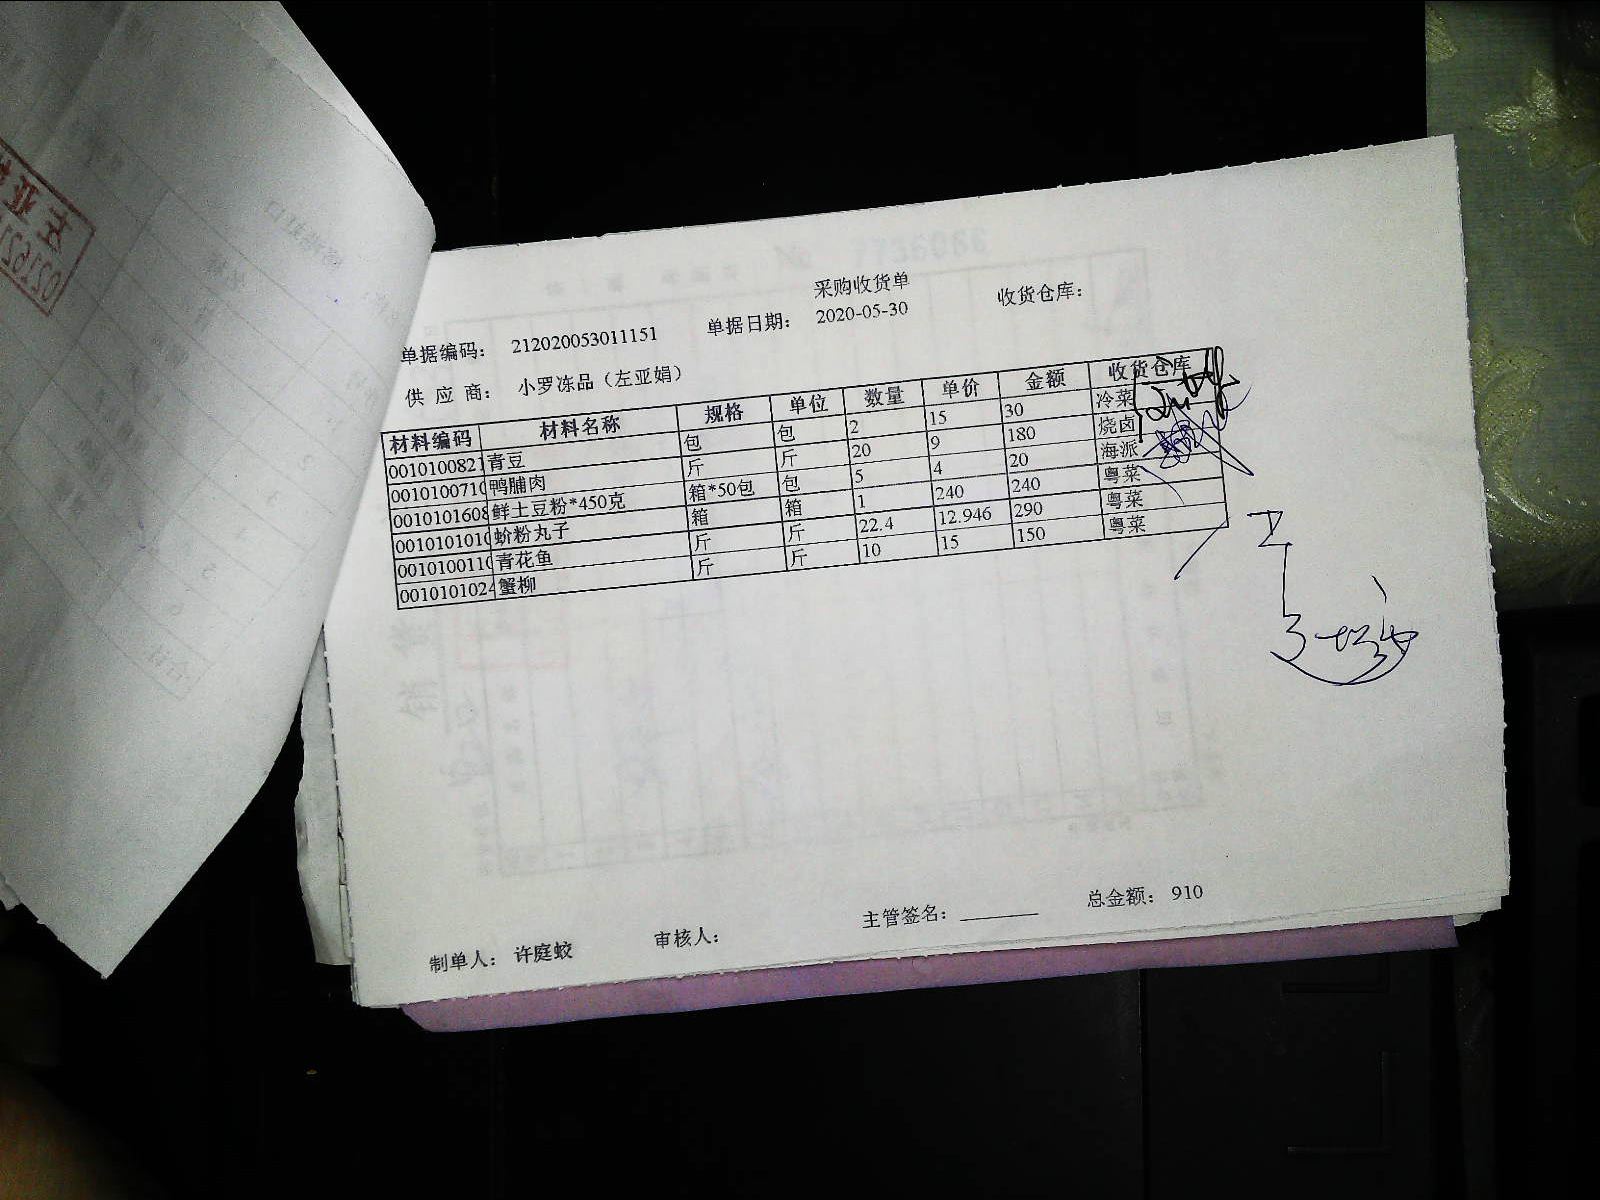 采购收货单
单据编码： 212020053011151 单据日期： 2020-05-30 收货仓库：
供 应 商： 小罗冻品（左亚娟）
材料编码 材料名称 规格 单位 数量 单价 金额 收货仓库
0010100821 青豆 包 包 2 15 30 冷菜
0010100710 鸭脯肉 斤 斤 20 9 180 烧卤
0010101608 鲜土豆粉*450克 箱*50包 包 5 4 20 海派
0010101010 蚧粉丸子 箱 箱 1 240 240 粤菜
0010100110 青花鱼 斤 斤 22.4 12.946 290 粤菜
0010101024 蟹柳 斤 斤 10 15 150 粤菜
制单人： 许庭蛟 审核人： 主管签名： 总金额： 910